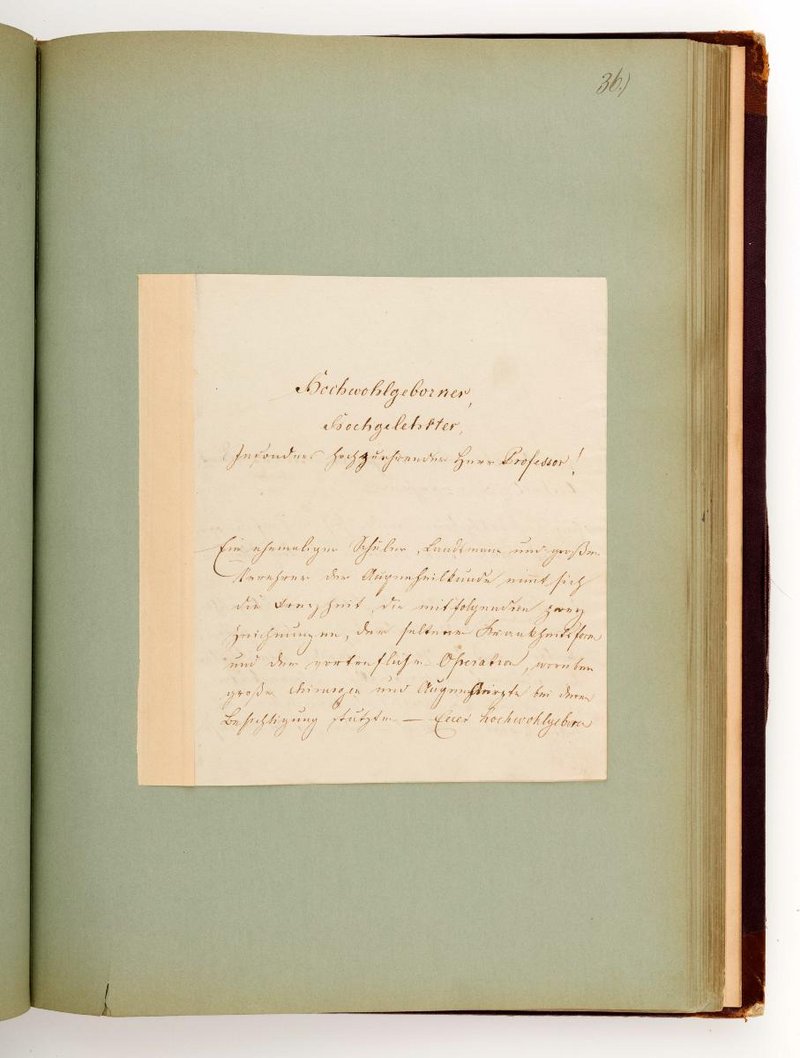 36.)
Hochwohlgeborner,
Hochgelehrter,
Insonders Hochzuehrender Herr Professor!
Ein ehemaliger Schüler, Landsmann und großer
Verehrer der Augenheilkunde nimt sich
die Freyheit, die mitfolgenden zwey
Zeichnungen, der seltenen Krankheitsform
und der vortreflichen Operation, worüber
große Chirurgen und Augenärzte bei deren
Besichtigung stutzten — Euer Hochwohlgeboren